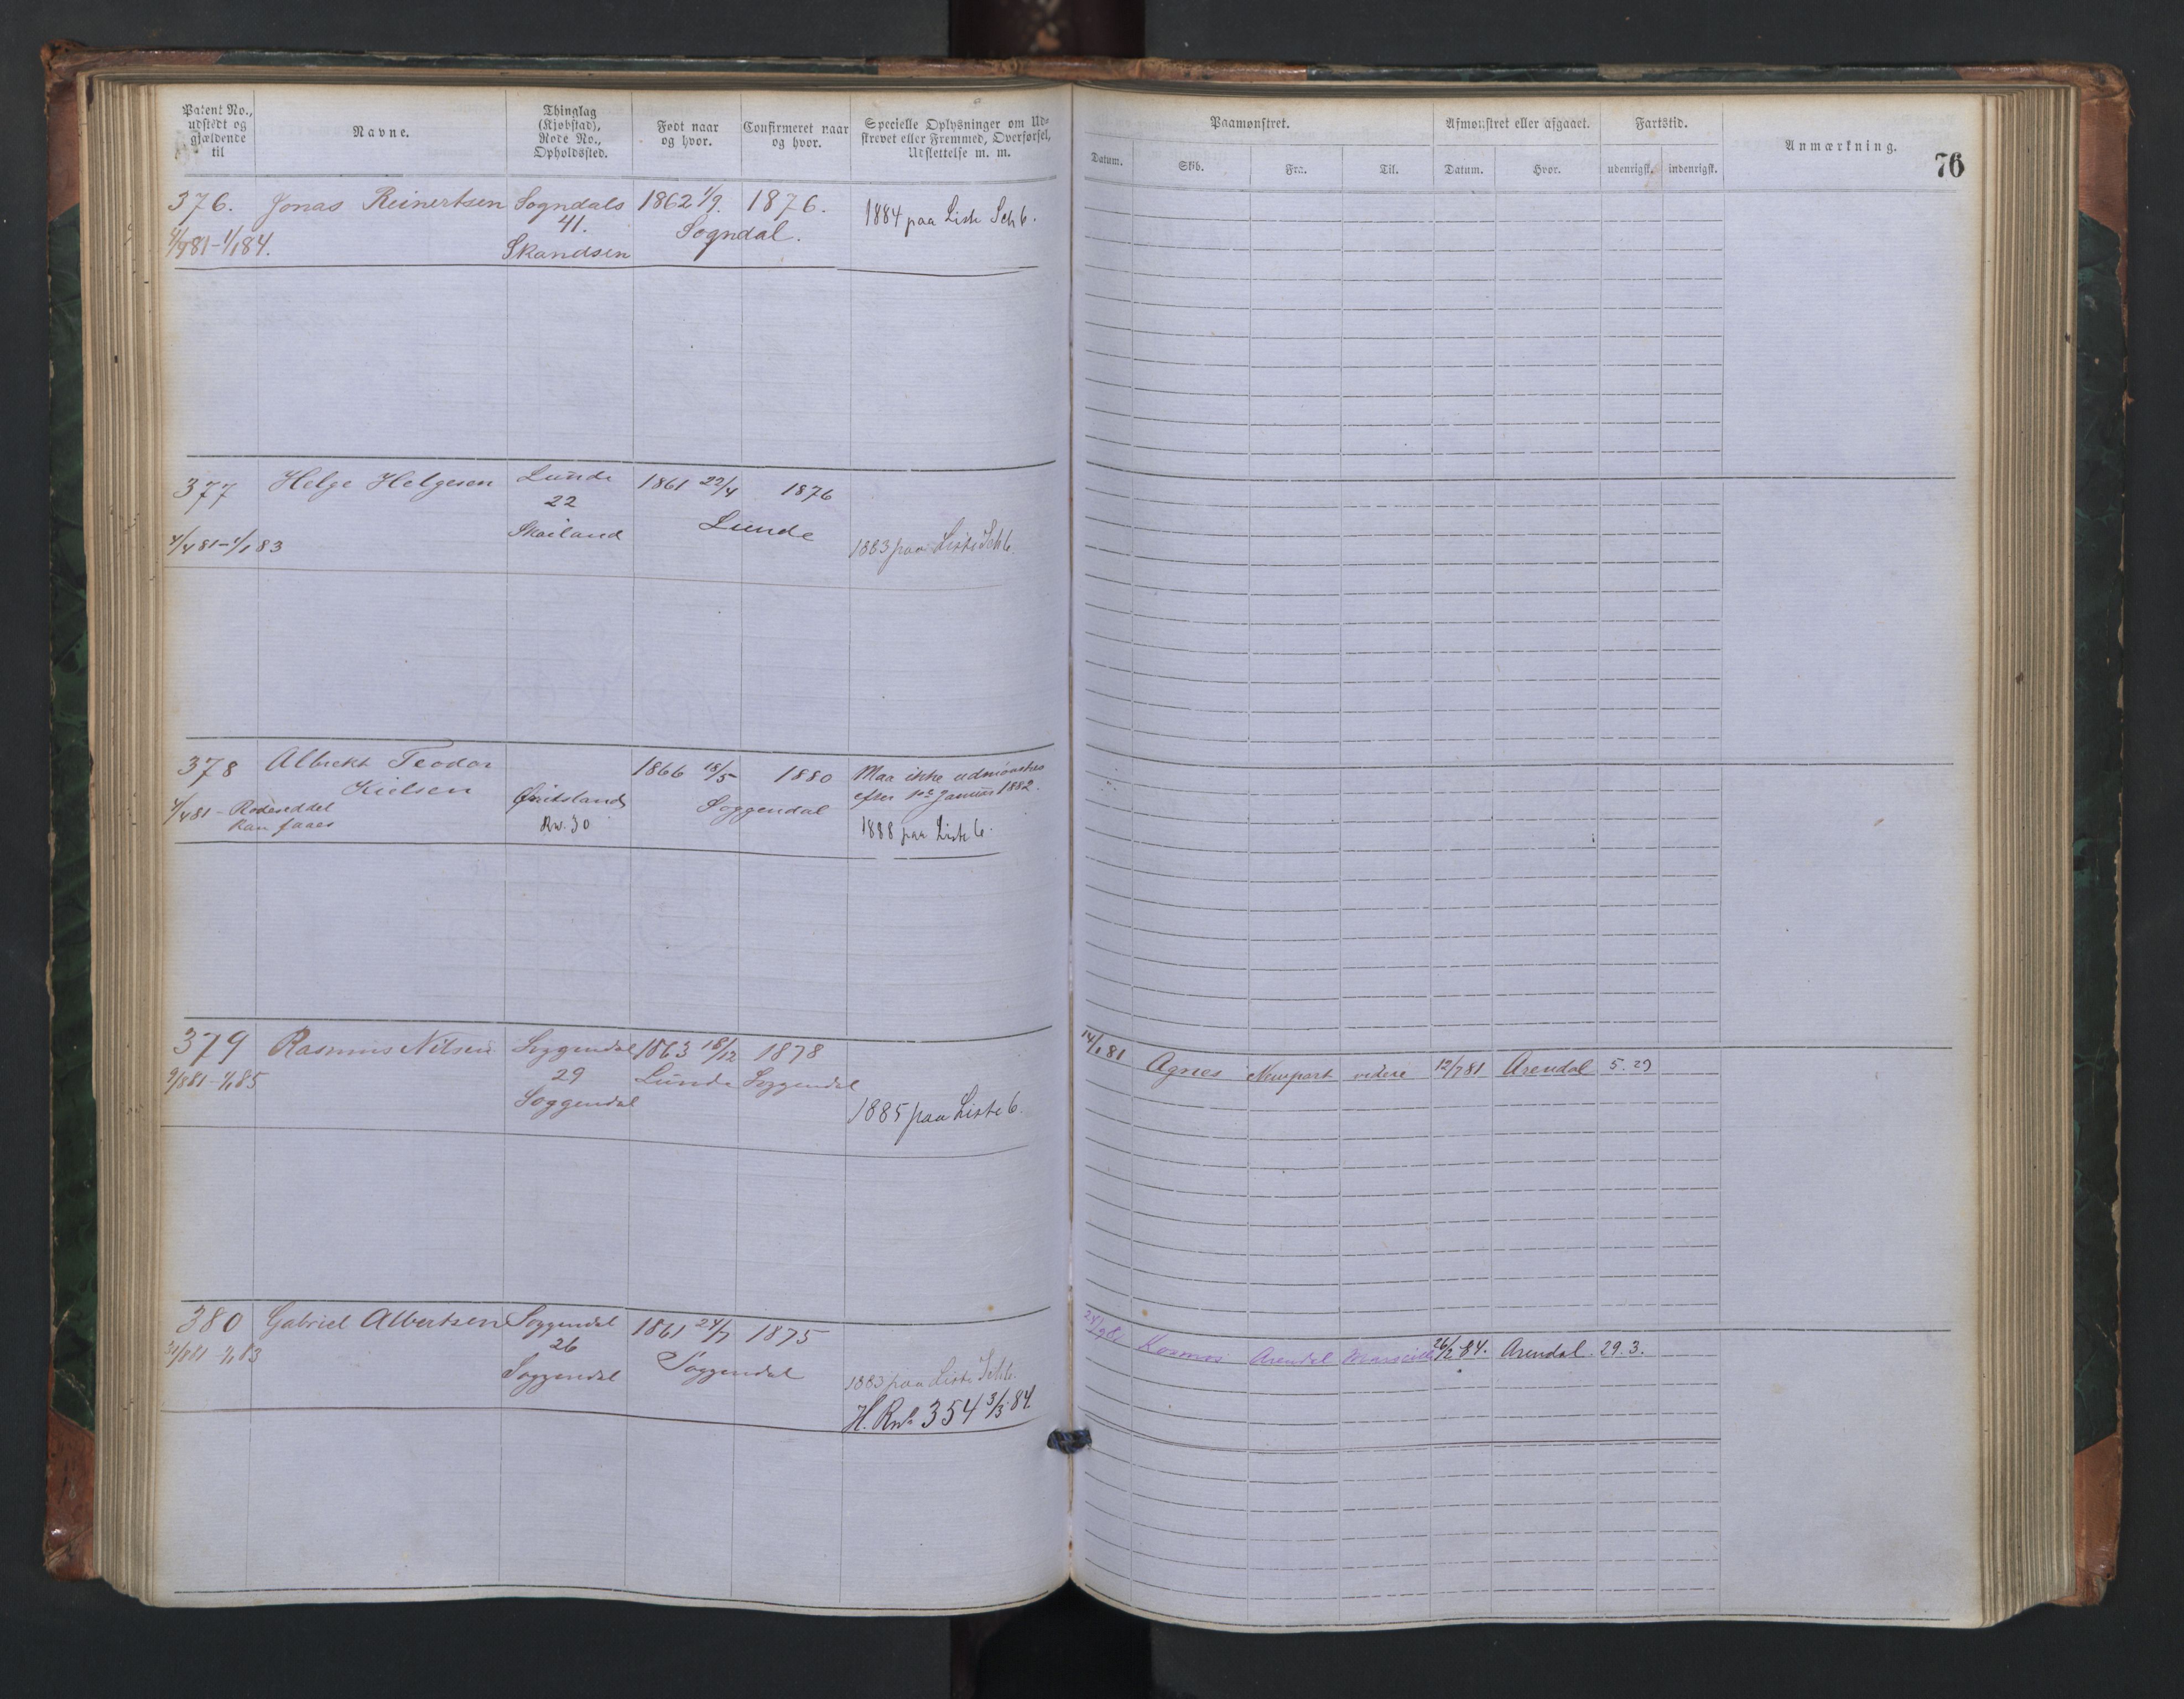 Patent No., udstedt og gjældende til
Navne.
Thinglag (Kjøbstad), Rode No., Opholdssted.
Født naar og hvor.
Confirmeret naar og hvor.
Specielle Oplysninger om Udskrevet eller Fremmed, Overførsel, Udslettelse m. m.
Paamønstret.
Afmønstret eller afgaaet.
Fartstid.
Anmærkning.
76
Datum.
Skib.
Fra.
Til.
Datum.
Hvor.
udenrigsk.
indenrigsk.
376. Jonas Reinertsen Sogndals 1862 1/9. 1876.
41. Sogndal.
1/1 84.
Skandsen
1884 paa Liste Sch 6.
377 Helge Helgesen Lunde 1861 22/4 1876
22
Skailand Lunde
4/4 81 - 1/1 83
1883 paa Liste Sch 6.
378 Albrekt Teodor 1866 18/5 1880 Maa ikke udmønstres
Kielsen efter 1ste Januar 1882.
4/4 81 - Rodeseddel Soggendal
kan faaes
Rw. 30
1888 paa Liste 6.
379 Rasmus Nilsen Soggendal 1863 18/12 1878
29 Lunde Soggendal
9/8 81 - 1/1 85
Soggendal
1885 paa Liste 6.
14/1 81 Agnes Newport videre 12/7 81 Arendal 5. 29
380 Gabriel Albertsen Soggendal 1861 24/7 1875
26
31/8 81 - 1/1 83
Soggendal Soggendal
1883 paa Liste Sch 6.
H. Rul. 354 3/3 84.
Kosmos Arendal Marseille 26/2 84. Arendal. 29. 3.